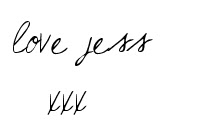 love jess
xxx